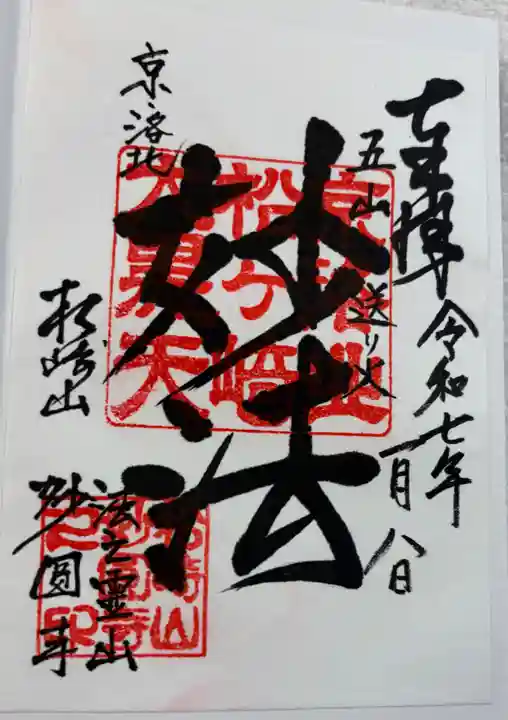 令和七年
一月八日
五山
送り火
妙法
京洛北
松ヶ崎
大黒天
京洛北
松崎山
法之靈山
妙圓寺